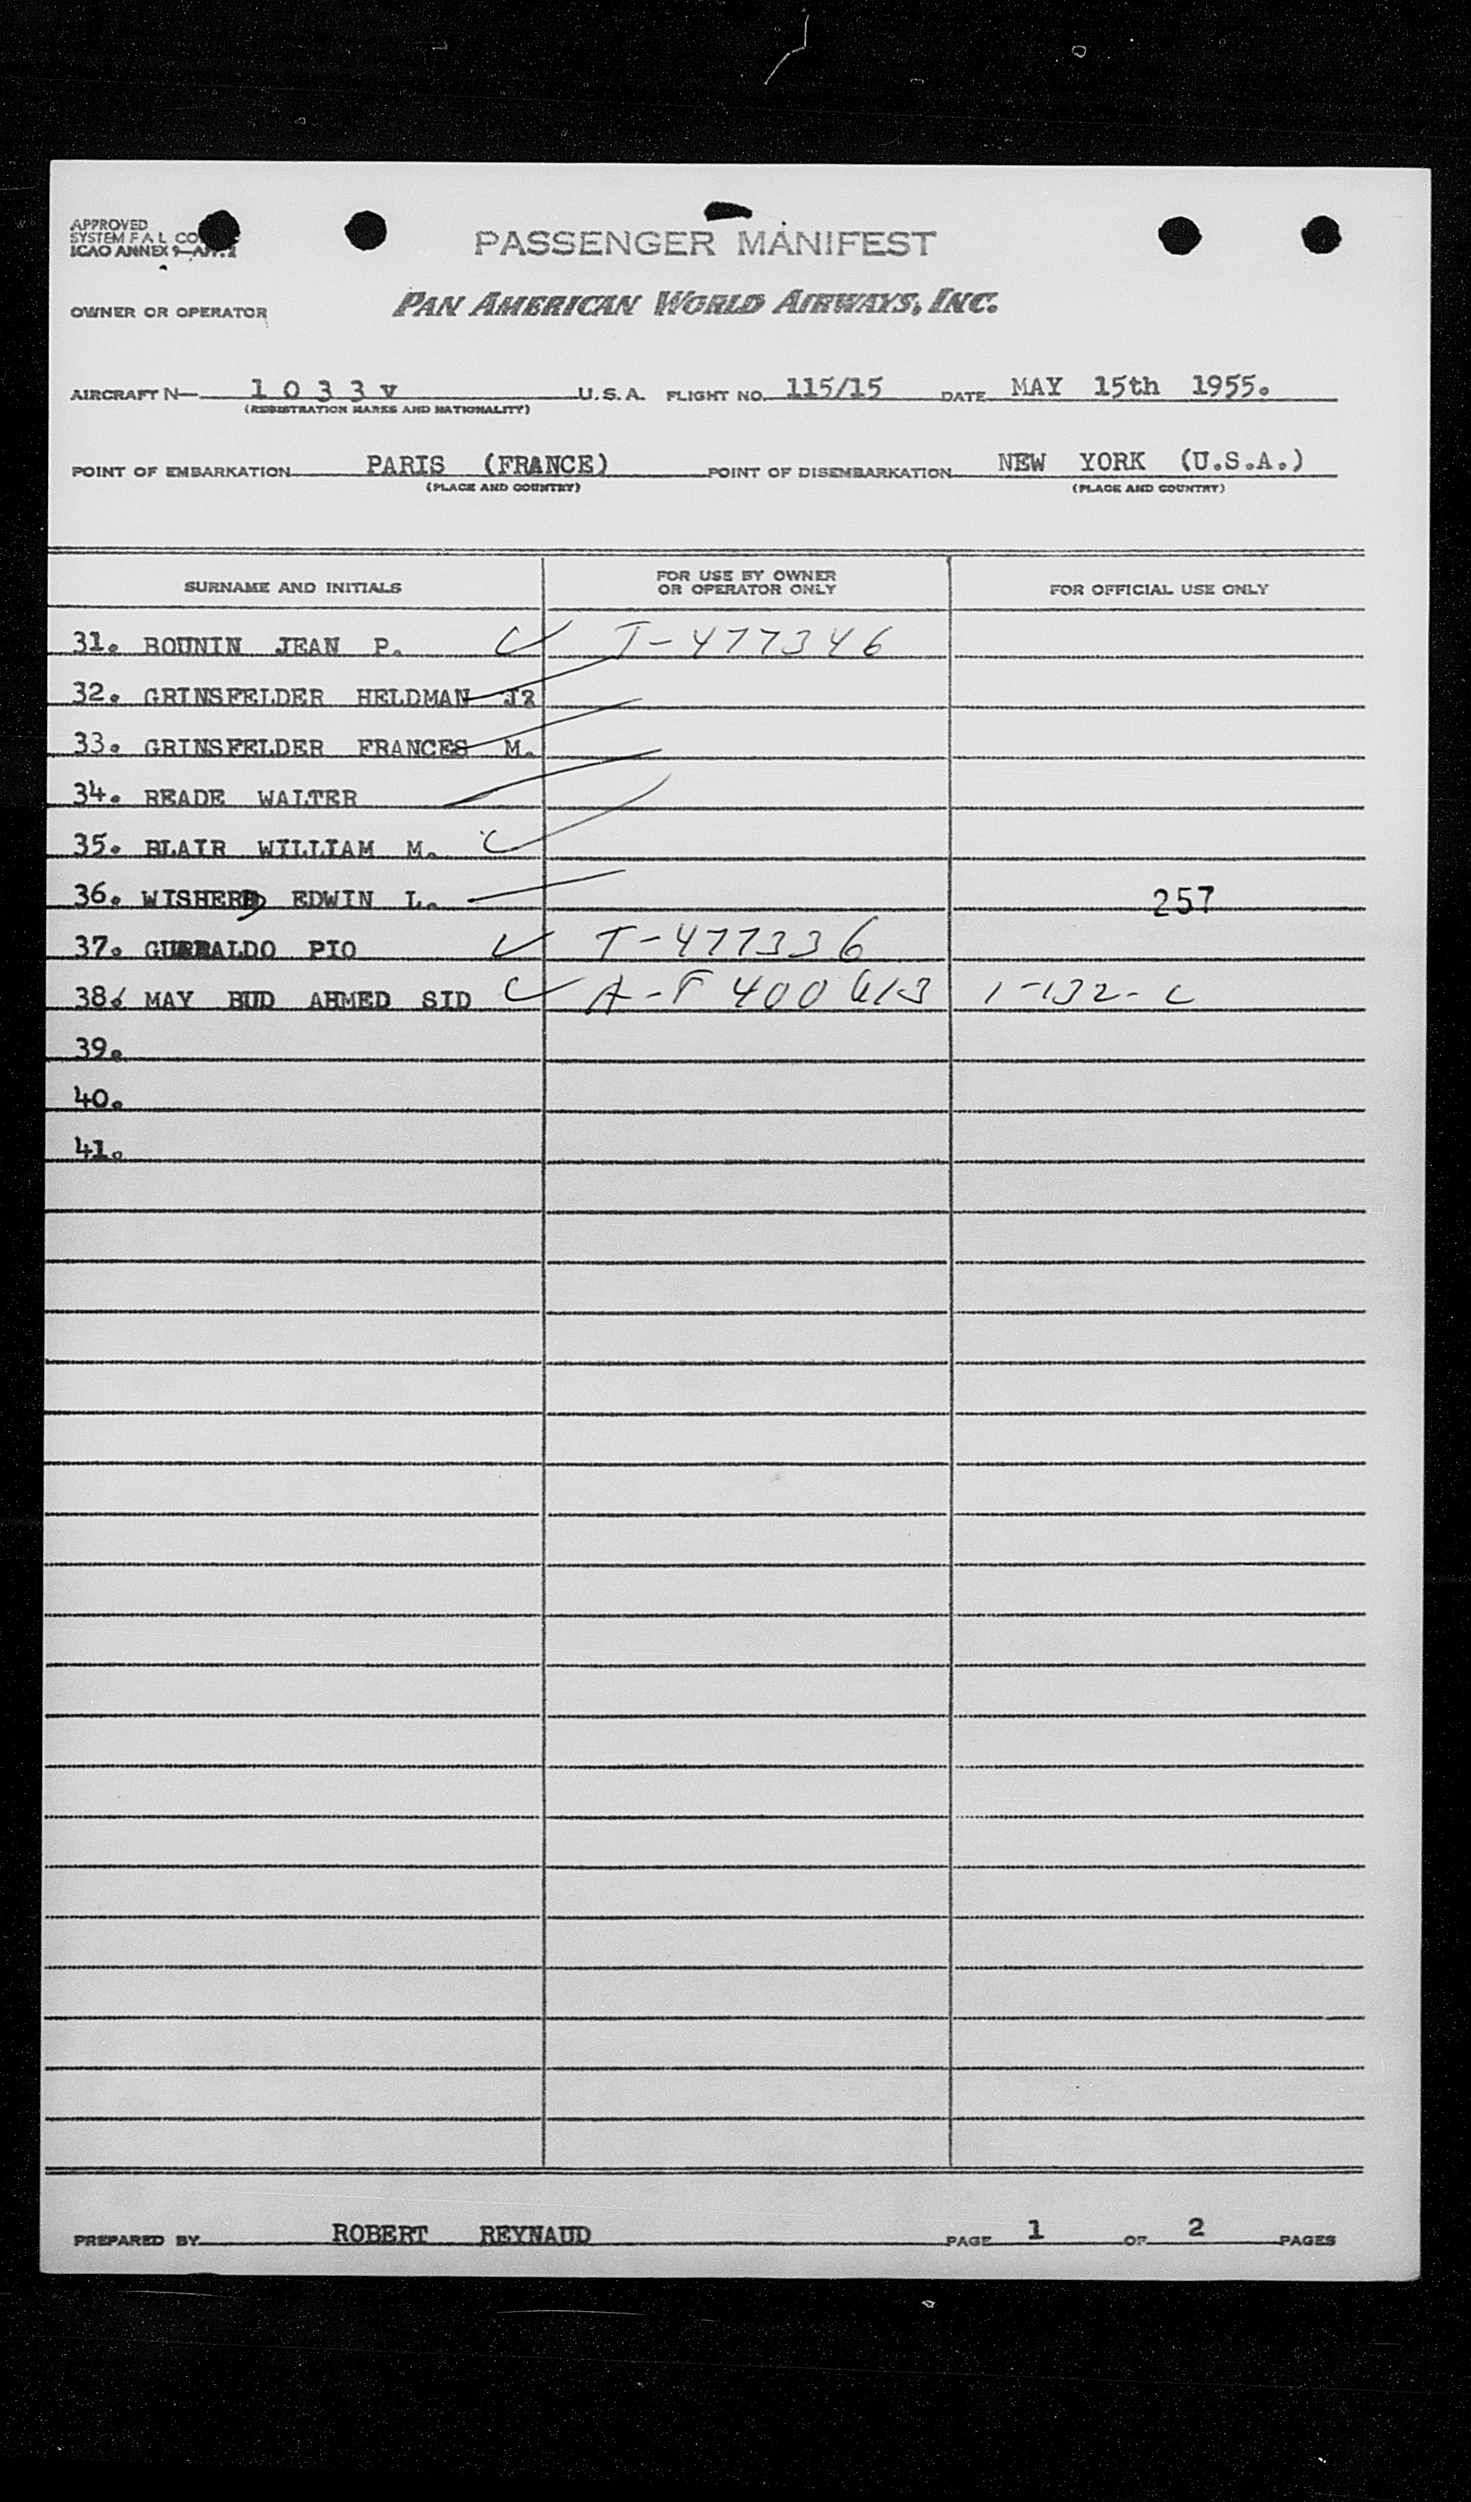 APPROVED
SYSTEM F A L
ICAO ANNEX 9
PASSENGER MANIFEST
OWNER OR OPERATOR
PAN AMERICAN WORLD AIRWAYS, INC.
AIRCRAFT N 1 0 3 3 V U.S.A. FLIGHT NO. 115/15 DATE MAY 15th 1955.
(REGISTRATION MARKS AND NATIONALITY)
POINT OF EMBARKATION PARIS (FRANCE) POINT OF DISEMBARKATION NEW YORK (U.S.A.)
(PLACE AND COUNTRY) (PLACE AND COUNTRY)
SURNAME AND INITIALS FOR USE BY OWNER OR OPERATOR ONLY FOR OFFICIAL USE ONLY
31. BOUNIN JEAN P. T-477346
32. GRINSFELDER HELDMAN
33. GRINSFELDER FRANCES M.
34. READE WALTER
35. BLAIR WILLIAM M.
36. WISHERD EDWIN L. 257
37. PIO T-477336
38. MAY BUD AHMED SID 1-132-C
39.
40.
41.
PREPARED BY ROBERT REYNAUD PAGE 1 OF 2 PAGES